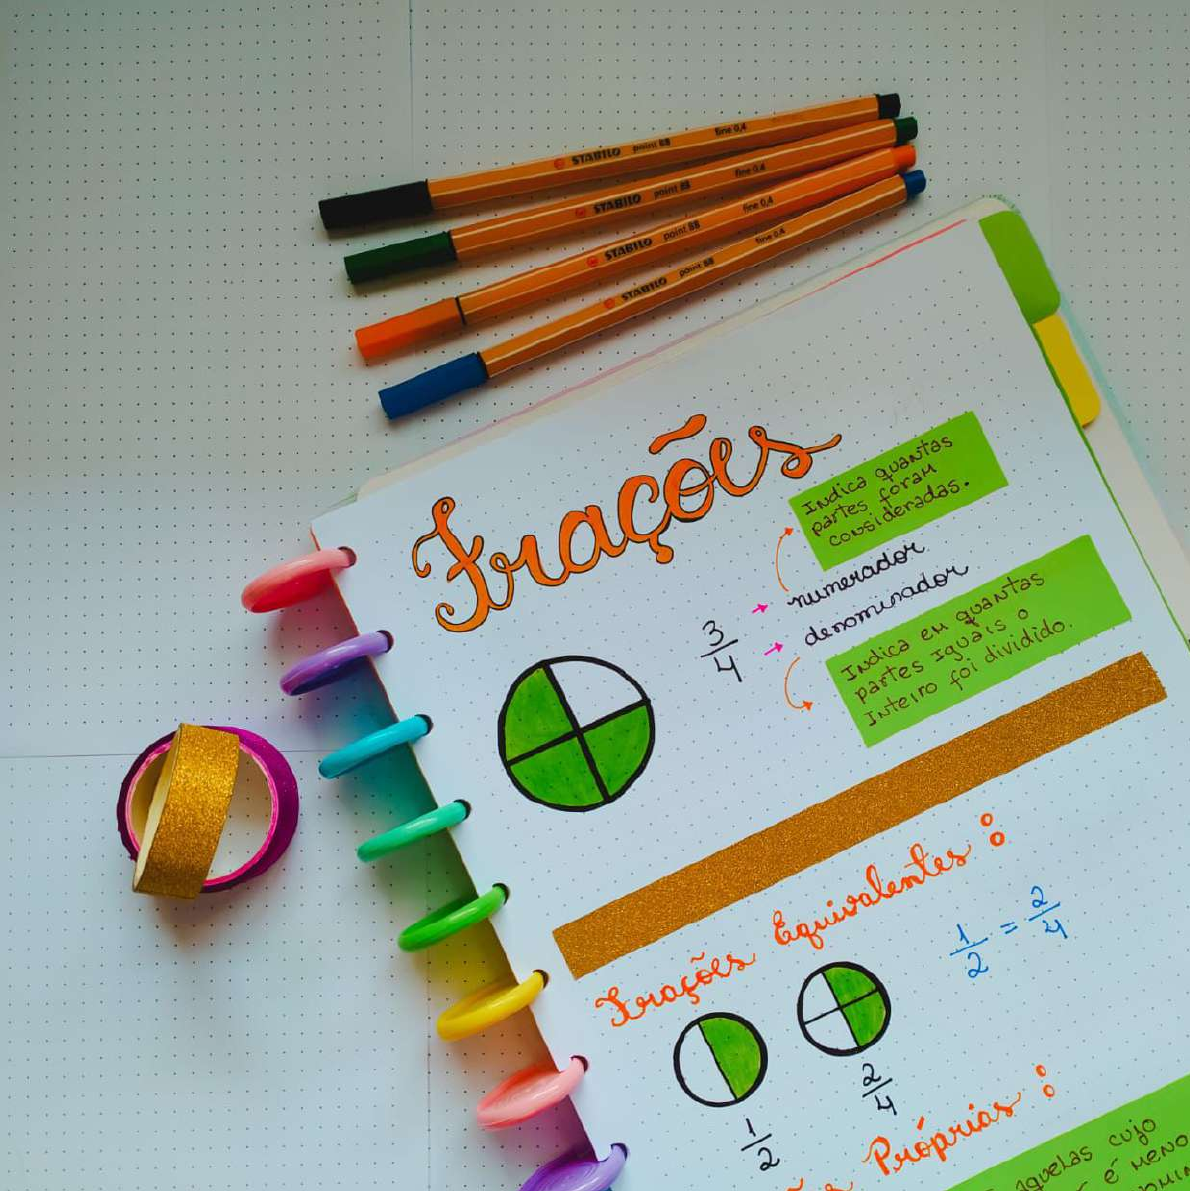 STABILO point 88 fine 0,4
STABILO point 88 fine 0,4
STABILO point 88 fine 0,4
STABILO point 88 fine 0,4
Frações
Indica quantas
partes foram
consideradas.
3/4
numerador
denominador
Indica em quantas
partes iguais o
Inteiro foi dividido.
Frações Equivalentes :
1/2 = 2/4
1/2
2/4
Próprias :
Aquelas cujo
é meno